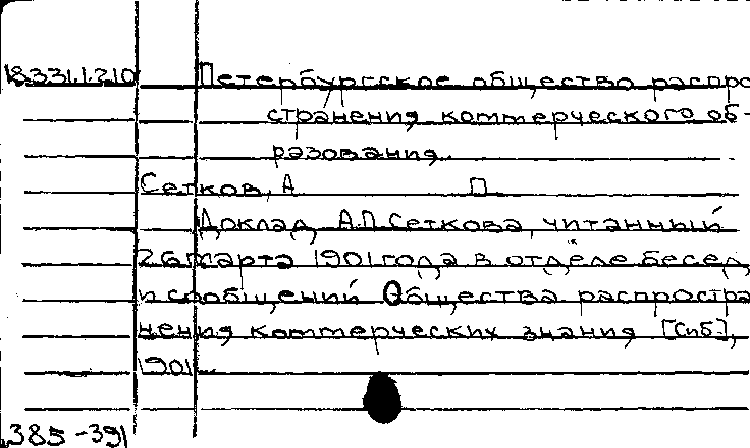 18.331.1.210 Петербургское общество распро
странения коммерческого об-
разования.
Сетков, А П
Доклад А.П.Сеткова, читанный
26 марта 1901 года в отделе бесед
и сообщений Общества распростра
нения коммерческих знания [Спб],
1901
385-391